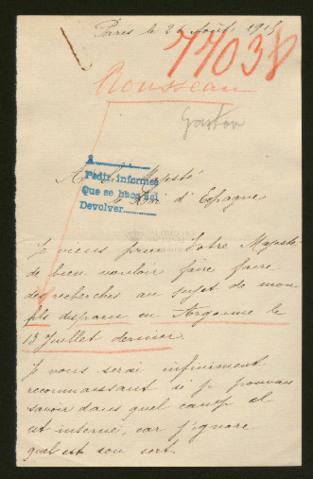 Paris le 26 Août 1915
77038
Rousseau
Gaston
A Sa Majesté
A
Pedir informes
Que se haga así
Devolver
le Roi d'Espagne
Je viens prier Votre Majesté
de bien vouloir faire faire
des recherches au sujet de mon
fils disparu en Argonne le
13 Juillet dernier.
Je vous serai infiniment
reconnaissant si je pouvais
savoir dans quel camp il
est interné, car j'ignore
quel est son sort.